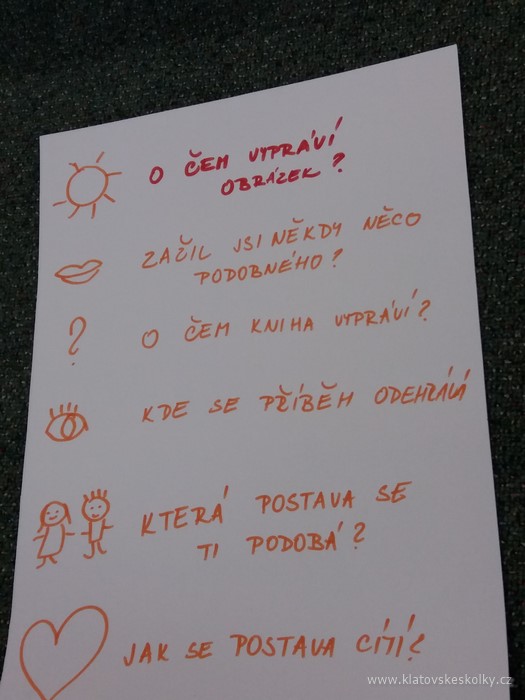 O ČEM VYPRÁVÍ
OBRÁZEK?
ZAŽIL JSI NĚKDY NĚCO
PODOBNÉHO?
?
O ČEM KNIHA VYPRÁVÍ?
KDE SE PŘÍBĚH ODEHRÁVÁ
KTERÁ POSTAVA SE
TI PODOBÁ?
JAK SE POSTAVA CÍTÍ?
www.klatovskeskolky.cz